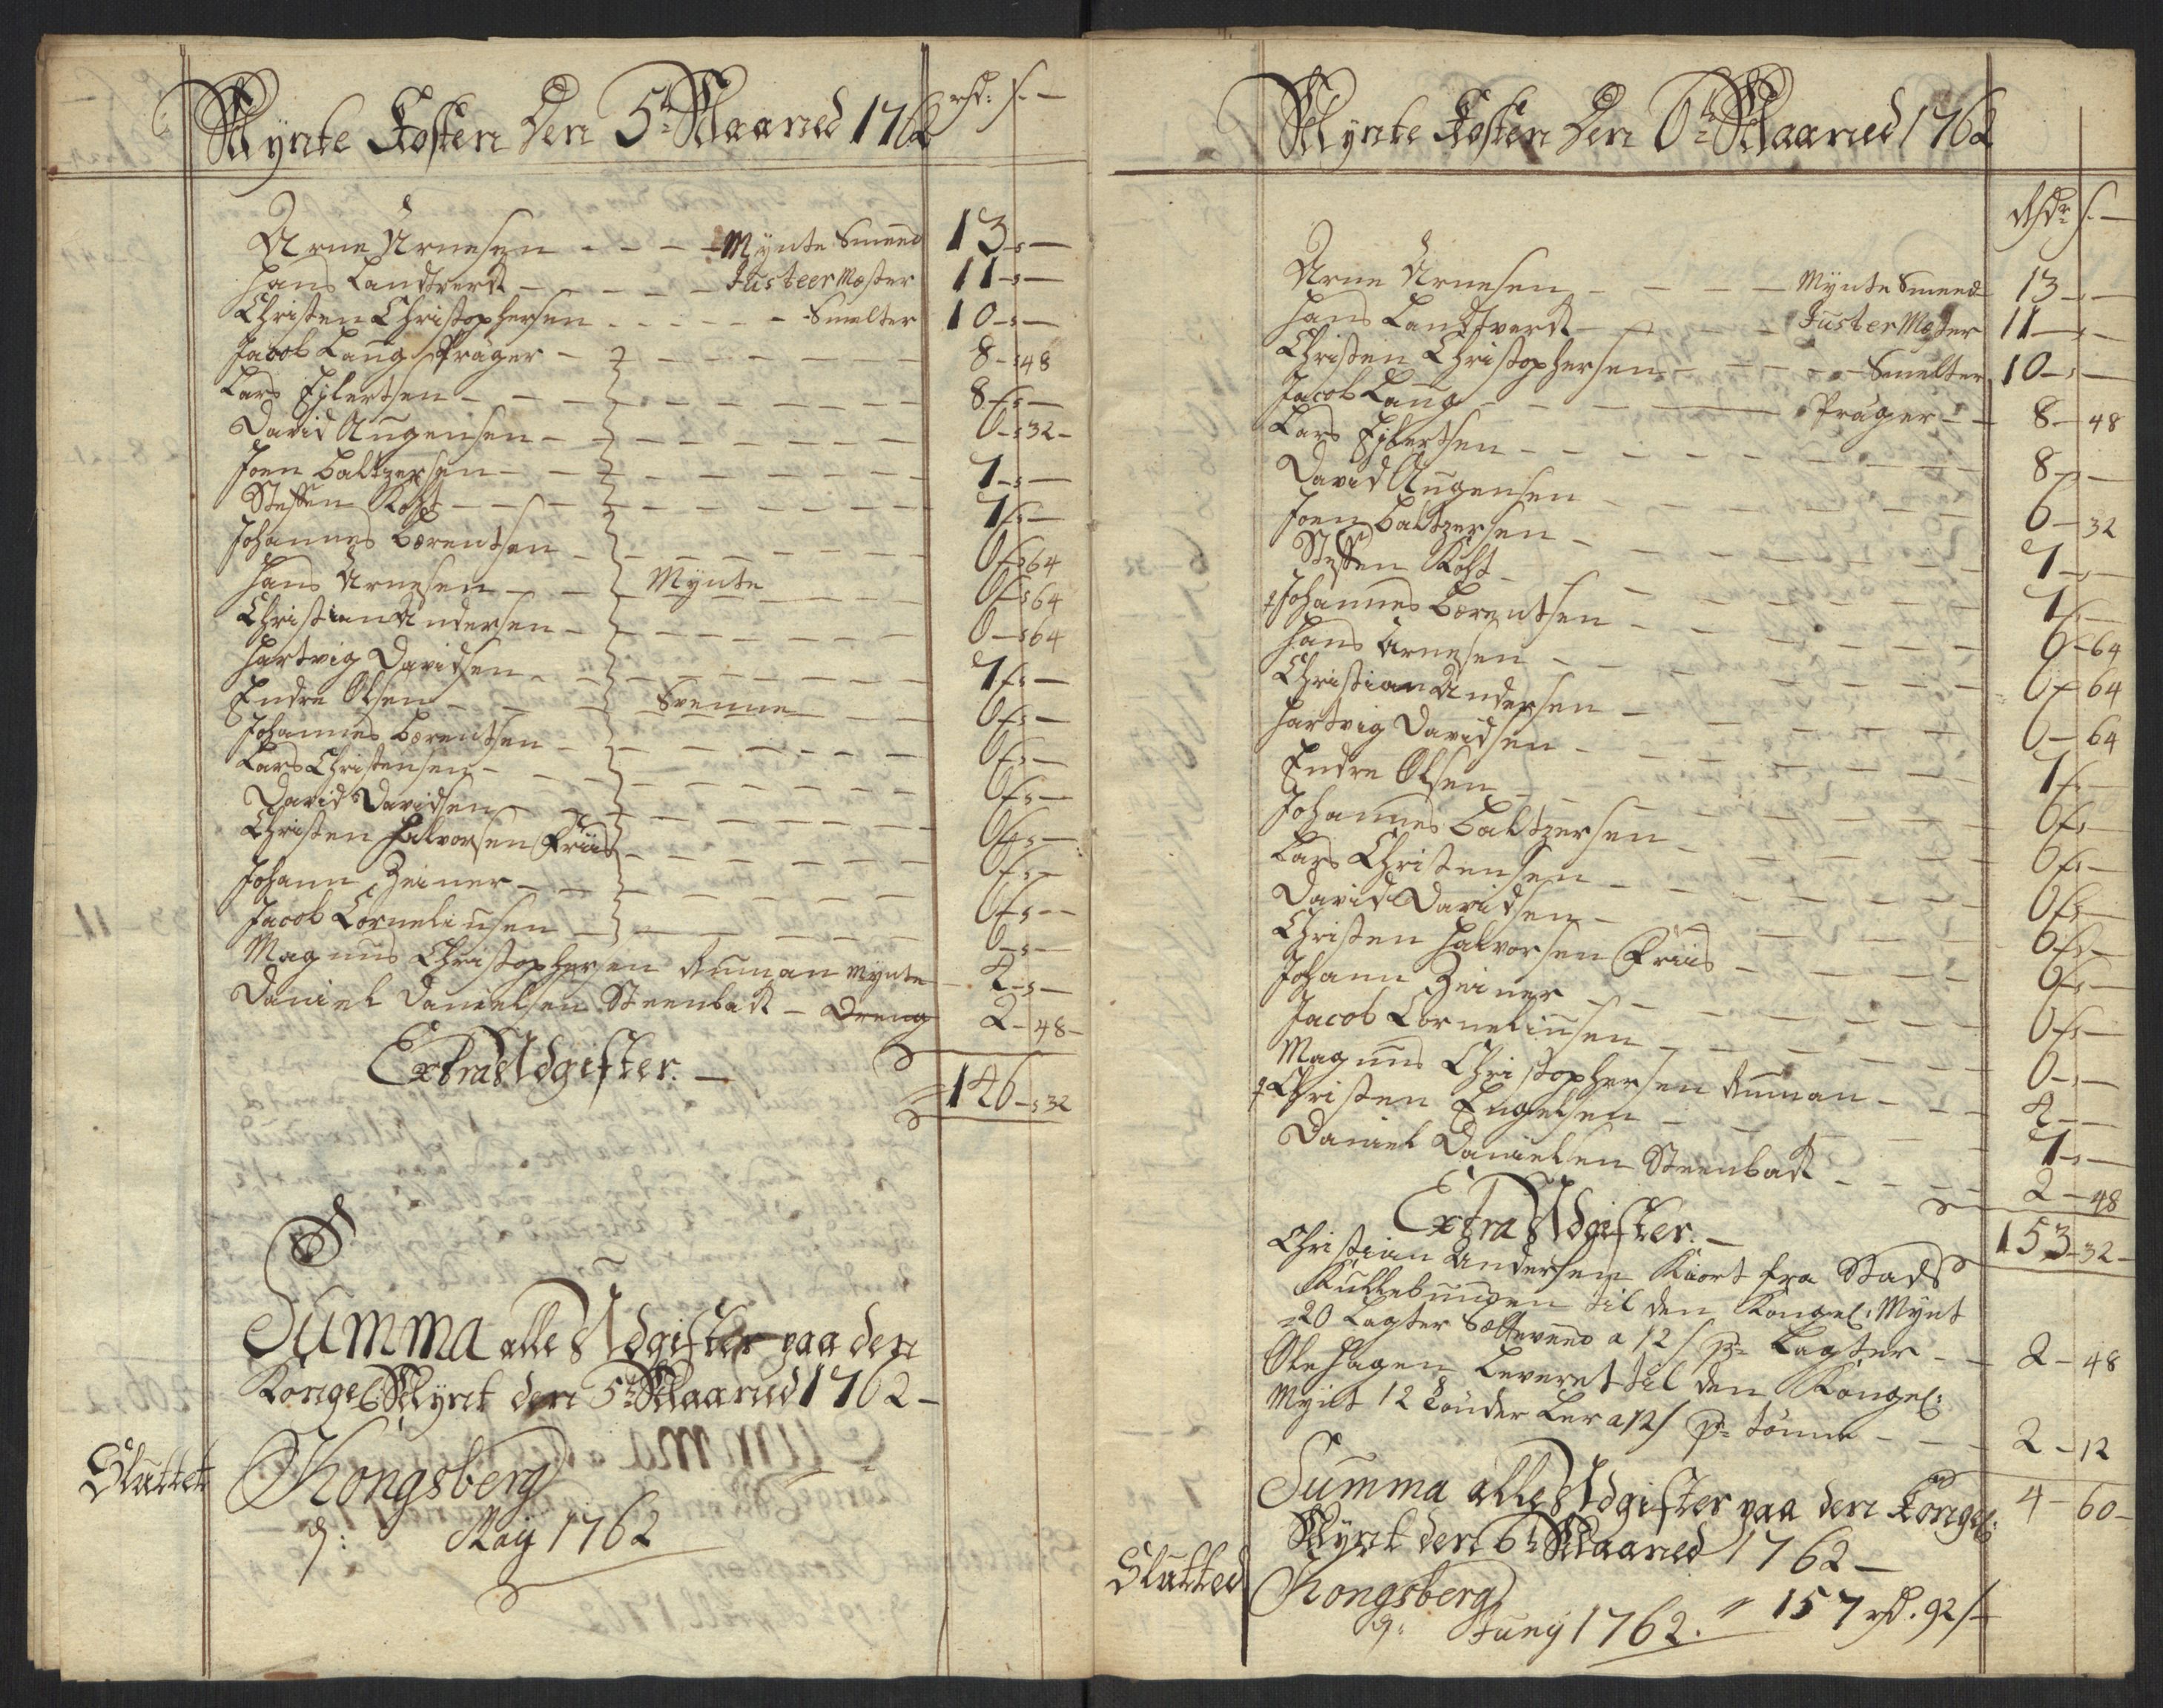 Mynte Kosten den 5te Maaned 1762 rd: s.
Arne Arnesen - - - Mynte Smeed 13 - s -
Hans Landtverk - - - - Justeer Mæster 11 - s -
Christen Christophersen - - - - Smelter 10 - s -
Jacob Laug Präger - - - - - 8 - s 48
Lars Eilertsen - - - - - 8 - s -
David Augensen - - - - - 6 - s 32 -
Joen Baltzersen - - - - - 7 - s -
Steffen Kolt - - - - - 7 - s -
Johannes Bærentsen - - - - - 6 - s 64
Hans Arnesen - - Mynte - - 6 - s 64
Christian Andersen - - - - - 6 - s 64
Hartvig Davidsen - - - - - 7 - s -
Endre Olsen - - Svenne - - 6 - s -
Johannes Bærentsen - - - - - 6 - s -
Lars Christensen - - - - - 6 - s -
David Davidsen - - - - - 6 - s -
Christen Halvorsen Friis - - - - 6 - s -
Johann Zeiner - - - - - 6 - s -
Jacob Corneliusen - - - - - 6 - s -
Magnus Christophersen Ruman Mynte - 4 - s -
Daniel Danielsen Steenbak - Dreng 2 - 48 -
Extra Udgifter. - 146 - s 32
S
Summa alle Udgifter paa den
Kongel: Mynt den 5te Maaned 1762 -
Sluttet Kongsberg
d: Maij 1762
Mynte Kosten den 6te Maaned 1762
Rdr s. -
Arne Arnesen - - - - Mynte Smeed 13 - s -
Hans Landtverk - - - - Juster Mæster 11 - s -
Christen Christophersen - - - - Smelter 10 - s -
Jacob Laug - - - Präger - - 8 - 48
Lars Eilertsen - - - - - 8 - s -
David Augensen - - - - - 6 - 32
Joen Baltzersen - - - - - 7 - s -
Steffen Kolt - - - - - 7 - s -
Johannes Bærentsen - - - - - 6 - 64
Hans Arnesen - - - - - 6 - 64
Christian Andersen - - - - - 6 - 64
Hartvig Davidsen - - - - - 7 - s -
Endre Olsen - - - - - 6 - s -
Johannes Baltzersen - - - - - 6 - s -
Lars Christensen - - - - - 6 - s -
David Davidsen - - - - - 6 - s -
Christen Halvorsen Friis - - - - 6 - s -
Johann Zeiner - - - - - 6 - s -
Jacob Corneliusen - - - - - 6 - s -
Magnus Christophersen Ruman - - - 4 - -
Christen Engelsen - - - - - 7 - s -
Daniel Danielsen Steenbak - - - - 2 - 48
Extra Udgifter. - 153 - 32 -
Christian Andersen Kiørt fra Stads
Kullebunden til den Kongel: Mynt
20 Lagter Sætteveed a 12 s pr Lagter - - 2 - 48
Ole Hagen Leveret til den Kongel:
Mynt 12 Tønder Leer a 12 s pr Tønne - - - 2 - 12
Summa alle Udgifter paa den Kongel: 4 - 60 -
Mynt den 6te Maaned 1762 -
Slutted Kongsberg
d: Junij 1762. " 157 rd. 92 s